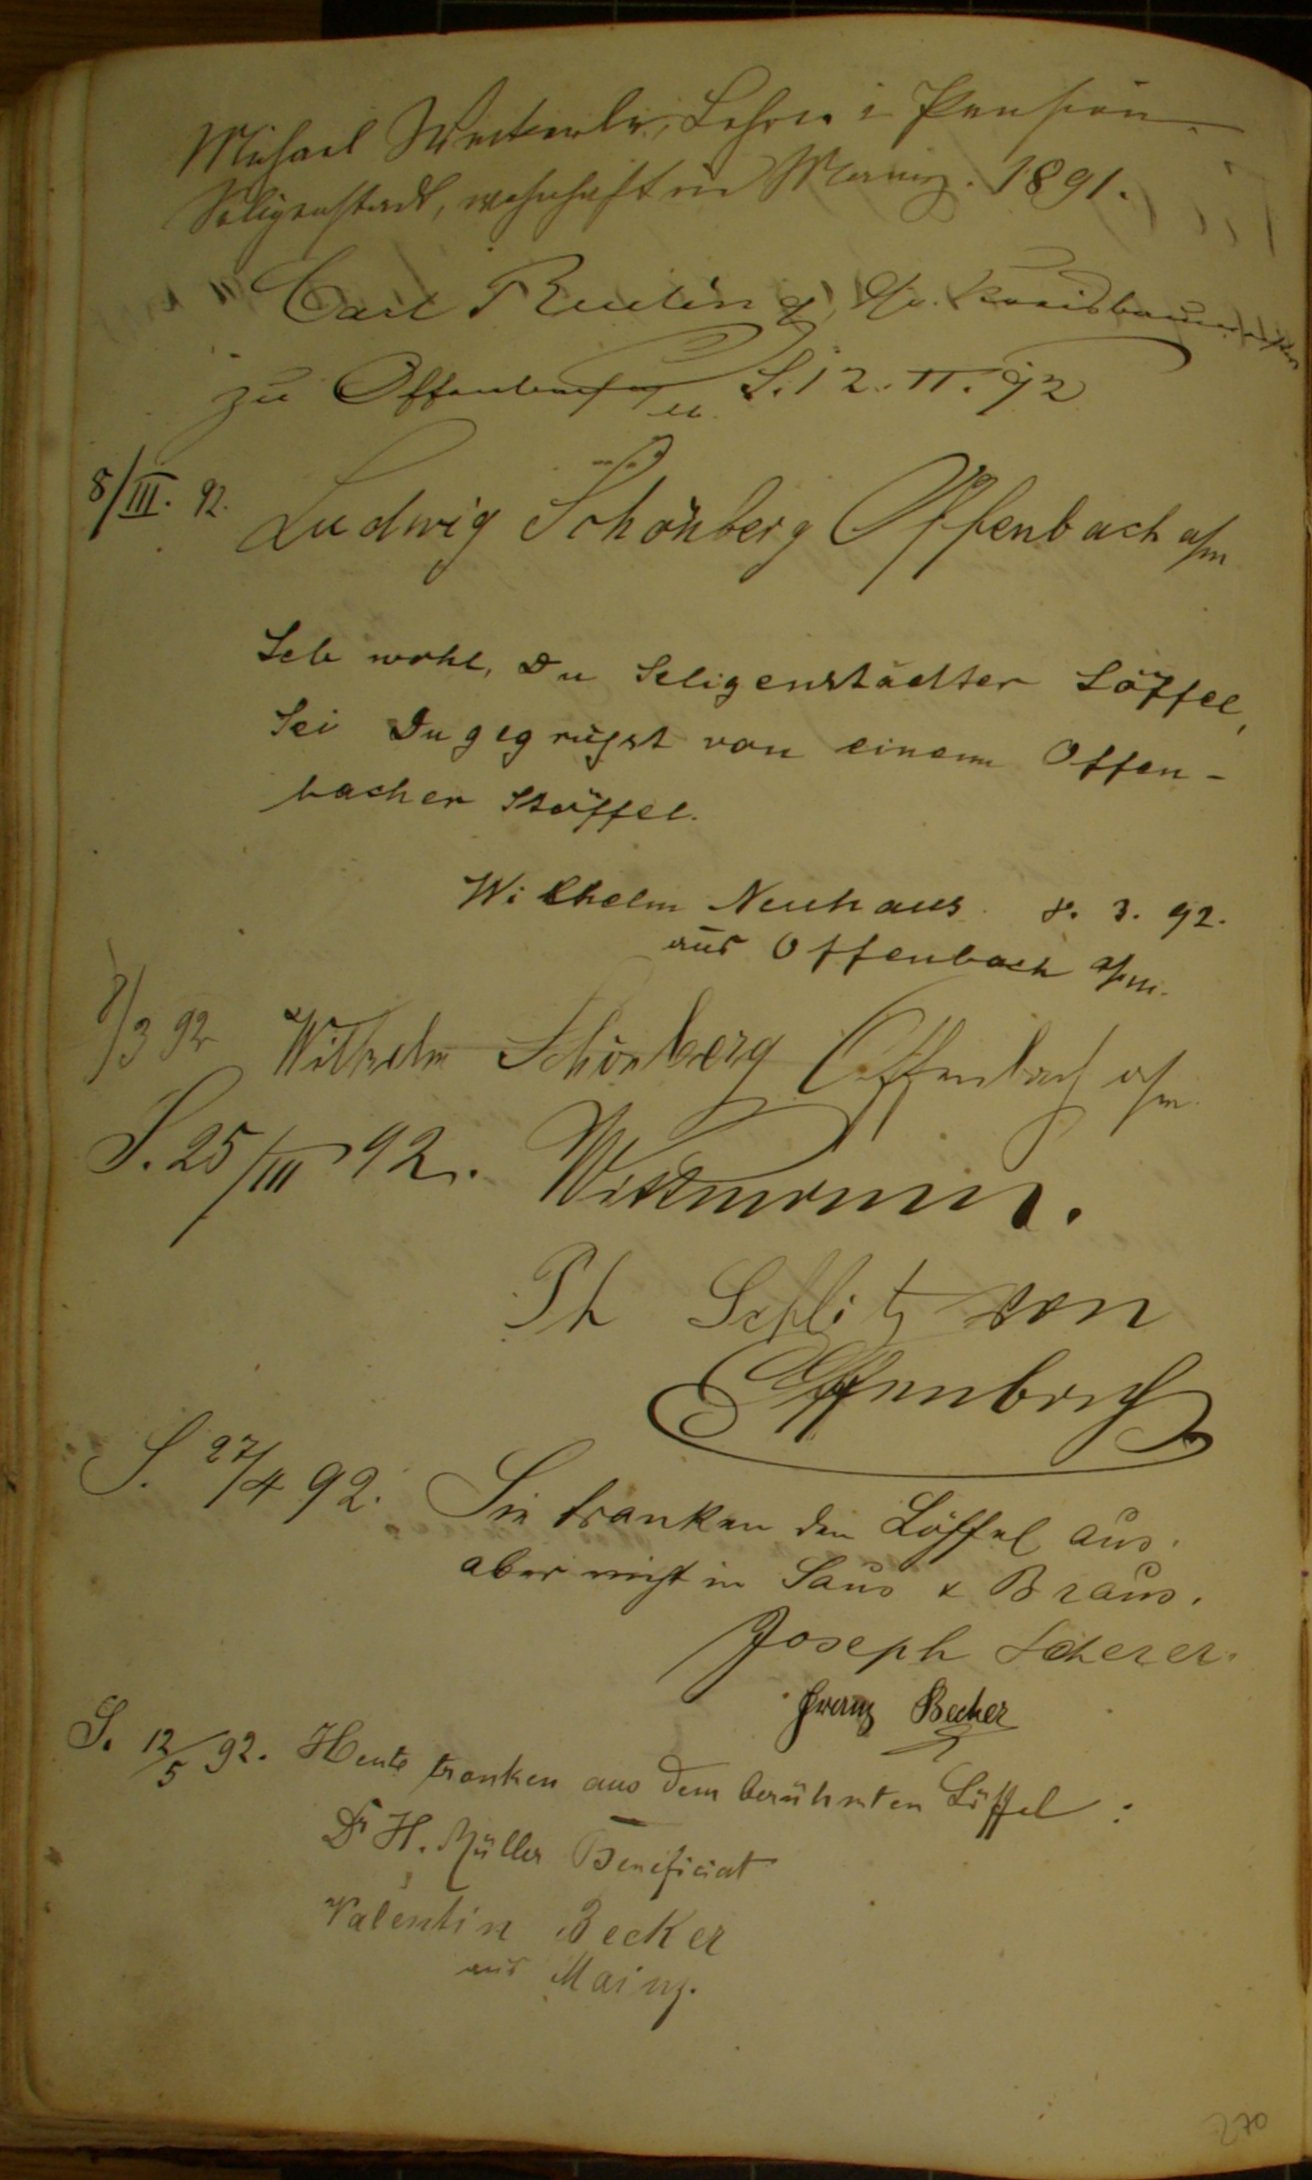 Michael Lehrer i Pension.
Seligenstadt, wohnhaft in Mainz. 1891.
Carl Reuling, Gr. Kreisbaumeister
zu Offenbach S. 12. II. 92
8/III. 92. Ludwig Schönberg Offenbach a/m
Leb wohl, Du Seligenstädter Löffel,
Sei Du gegrüßt von einem Offen-
bacher Stöffel.
Wilhelm Neuhaus 8. 3. 92.
aus Offenbach a/m.
8/3 92 Wilhelm Schönberg Offenbach a/m.
S. 25/III 92. Wittmann.
Ph Schlitz von
Offenbach
S. 27/4 92. Sie tranken den Löffel aus.
aber nicht in Saus & Braus.
Joseph Scherer.
Franz Becker
S. 12/5 92. Heute tranken aus dem berühmten Löffel:
Dr H. Müller Beneficiat
Valentin Becker
aus Mainz.
270